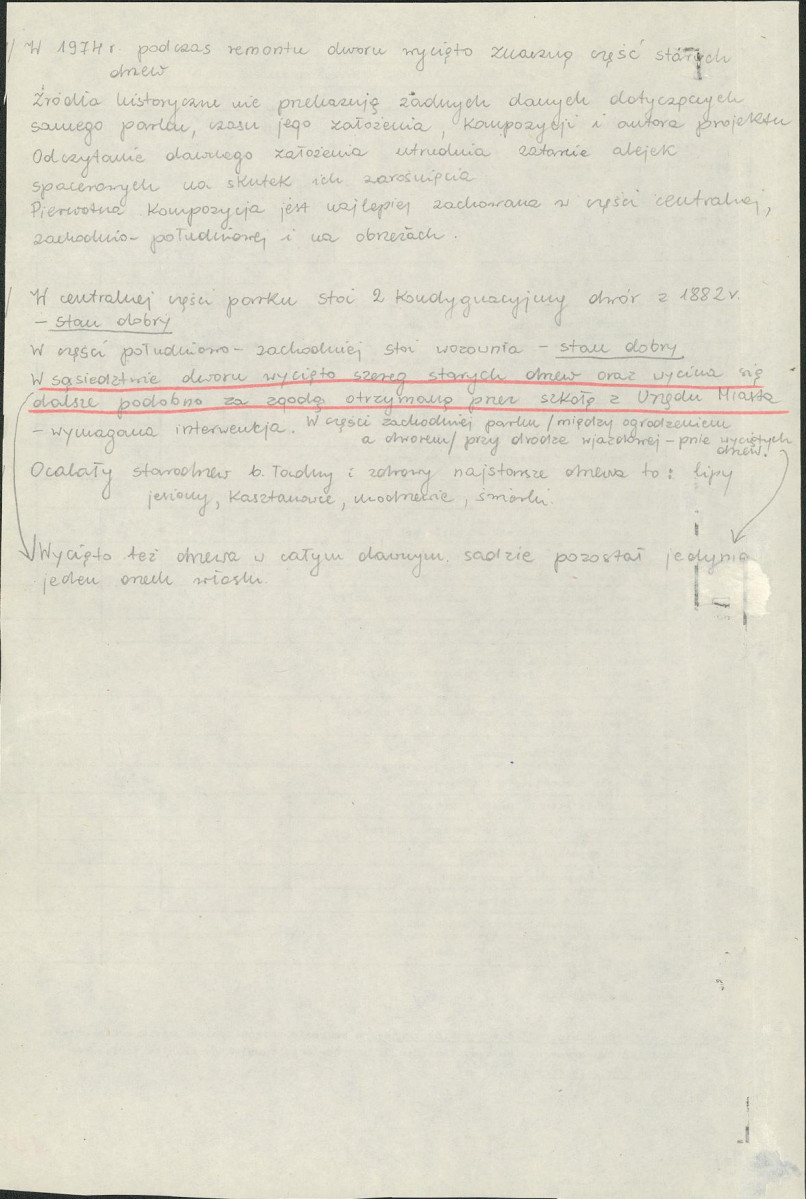 W 1974 r. podczas remontu dworu wycięto znaczną część starych
drzew
Źródła historyczne nie przekazują żadnych danych dotyczących
samego parku, czasu jego założenia, kompozycji i autora projektu
Odczytanie dawnego założenia utrudnia zatarcie alejek
spacerowych na skutek ich zarośnięcia
Pierwotna kompozycja jest najlepiej zachowana w części centralnej,
zachodnio-południowej i na obrzeżach.
W centralnej części parku stoi 2 kondygnacyjny dwór z 1882 r.
– stan dobry
W części południowo-zachodniej stoi wozownia – stan dobry
W sąsiedztwie dworu wycięto szereg starych drzew oraz wycina się
dalsze podobno za zgodą otrzymaną przez szkołę z Urzędu Miasta
– wymagana interwencja. W części zachodniej parku /między ogrodzeniem
a dworem/ przy drodze wjazdowej – pnie wyciętych
drzew.
Ocalały starodrzew b. ładny i zdrowy najstarsze drzewa to: lipy
jesiony, kasztanowce, modrzewie, świerki.
Wycięto też drzewa w całym dawnym. sadzie pozostał jedynie
jeden orzech włoski.